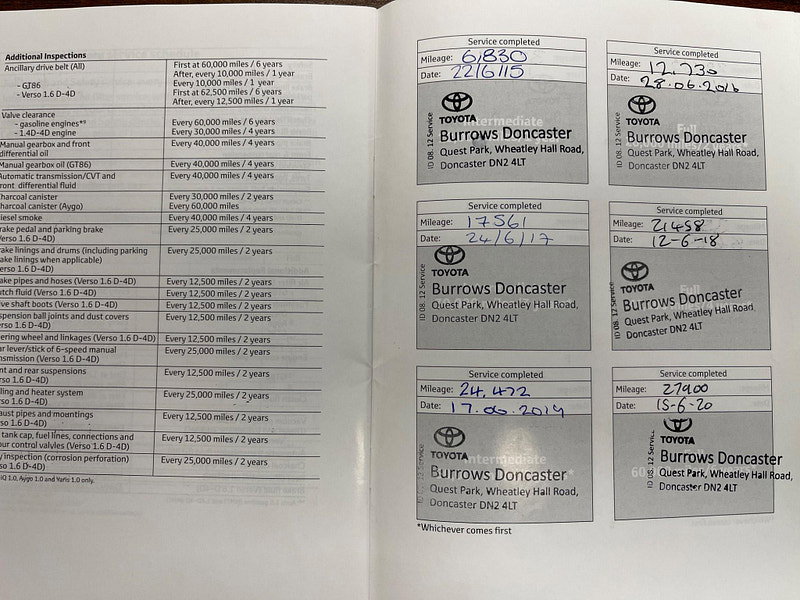 Additional Inspections
Ancillary drive belt (All)
First at 60,000 miles / 6 years
After, every 10,000 miles / 1 year
- GT86
Every 10,000 miles / 1 year
- Verso 1.6 D-4D
First at 62,500 miles / 6 years
After, every 12,500 miles / 1 year
Valve clearance
- gasoline engines*⁹
Every 60,000 miles / 6 years
- 1.4D-4D engine
Every 30,000 miles / 4 years
Manual gearbox and front
differential oil
Every 40,000 miles / 4 years
Manual gearbox oil (GT86)
Every 40,000 miles / 4 years
Automatic transmission/CVT and
front differential fluid
Every 40,000 miles / 4 years
harcoal canister
Every 30,000 miles / 2 years
harcoal canister (Aygo)
Every 60,000 miles
iesel smoke
Every 40,000 miles / 4 years
rake pedal and parking brake
Verso 1.6 D-4D)
Every 25,000 miles / 2 years
ake linings and drums (including parking
ake linings when applicable)
erso 1.6 D-4D)
Every 25,000 miles / 2 years
ake pipes and hoses (Verso 1.6 D-4D)
Every 12,500 miles / 2 years
tch fluid (Verso 1.6 D-4D)
Every 12,500 miles / 2 years
ve shaft boots (Verso 1.6 D-4D)
Every 12,500 miles / 2 years
spension ball joints and dust covers
erso 1.6 D-4D)
Every 12,500 miles / 2 years
ering wheel and linkages (Verso 1.6 D-4D)
Every 12,500 miles / 2 years
ar lever/stick of 6-speed manual
nsmission (Verso 1.6 D-4D)
Every 25,000 miles / 2 years
nt and rear suspensions
rso 1.6 D-4D)
Every 12,500 miles / 2 years
ling and heater system
so 1.6 D-4D)
Every 25,000 miles / 2 years
aust pipes and mountings
so 1.6 D-4D)
Every 12,500 miles / 2 years
tank cap, fuel lines, connections and
our control valves (Verso 1.6 D-4D)
Every 12,500 miles / 2 years
y inspection (corrosion perforation)
so 1.6 D-4D)
Every 25,000 miles / 2 years
iQ 1.0, Aygo 1.0 and Yaris 1.0 only.
Service completed
Mileage: 6,830
Date: 22/6/15
Intermediate
ID 08. 12 Service
TOYOTA
Burrows Doncaster
Quest Park, Wheatley Hall Road,
Doncaster DN2 4LT
Service completed
Mileage: 12,730
Date: 28.06.2016
Full
ID 08. 12 Service
TOYOTA
Burrows Doncaster
Quest Park, Wheatley Hall Road,
Doncaster DN2 4LT
Service completed
Mileage: 17561
Date: 24/6/17
ID 08. 12 Service
TOYOTA
Burrows Doncaster
Quest Park, Wheatley Hall Road,
Doncaster DN2 4LT
Service completed
Mileage: 21458
Date: 12-6-18
Full
ID 08. 12 Service
TOYOTA
Burrows Doncaster
Quest Park, Wheatley Hall Road,
Doncaster DN2 4LT
Service completed
Mileage: 24,472
Date: 17.06.2019
Intermediate
ID 08. 12 Service
TOYOTA
Burrows Doncaster
Quest Park, Wheatley Hall Road,
Doncaster DN2 4LT
Service completed
Mileage: 27900
Date: 15-6-20
ID 08. 12 Service
TOYOTA
Burrows Doncaster
Quest Park, Wheatley Hall Road,
Doncaster DN2 4LT
*Whichever comes first